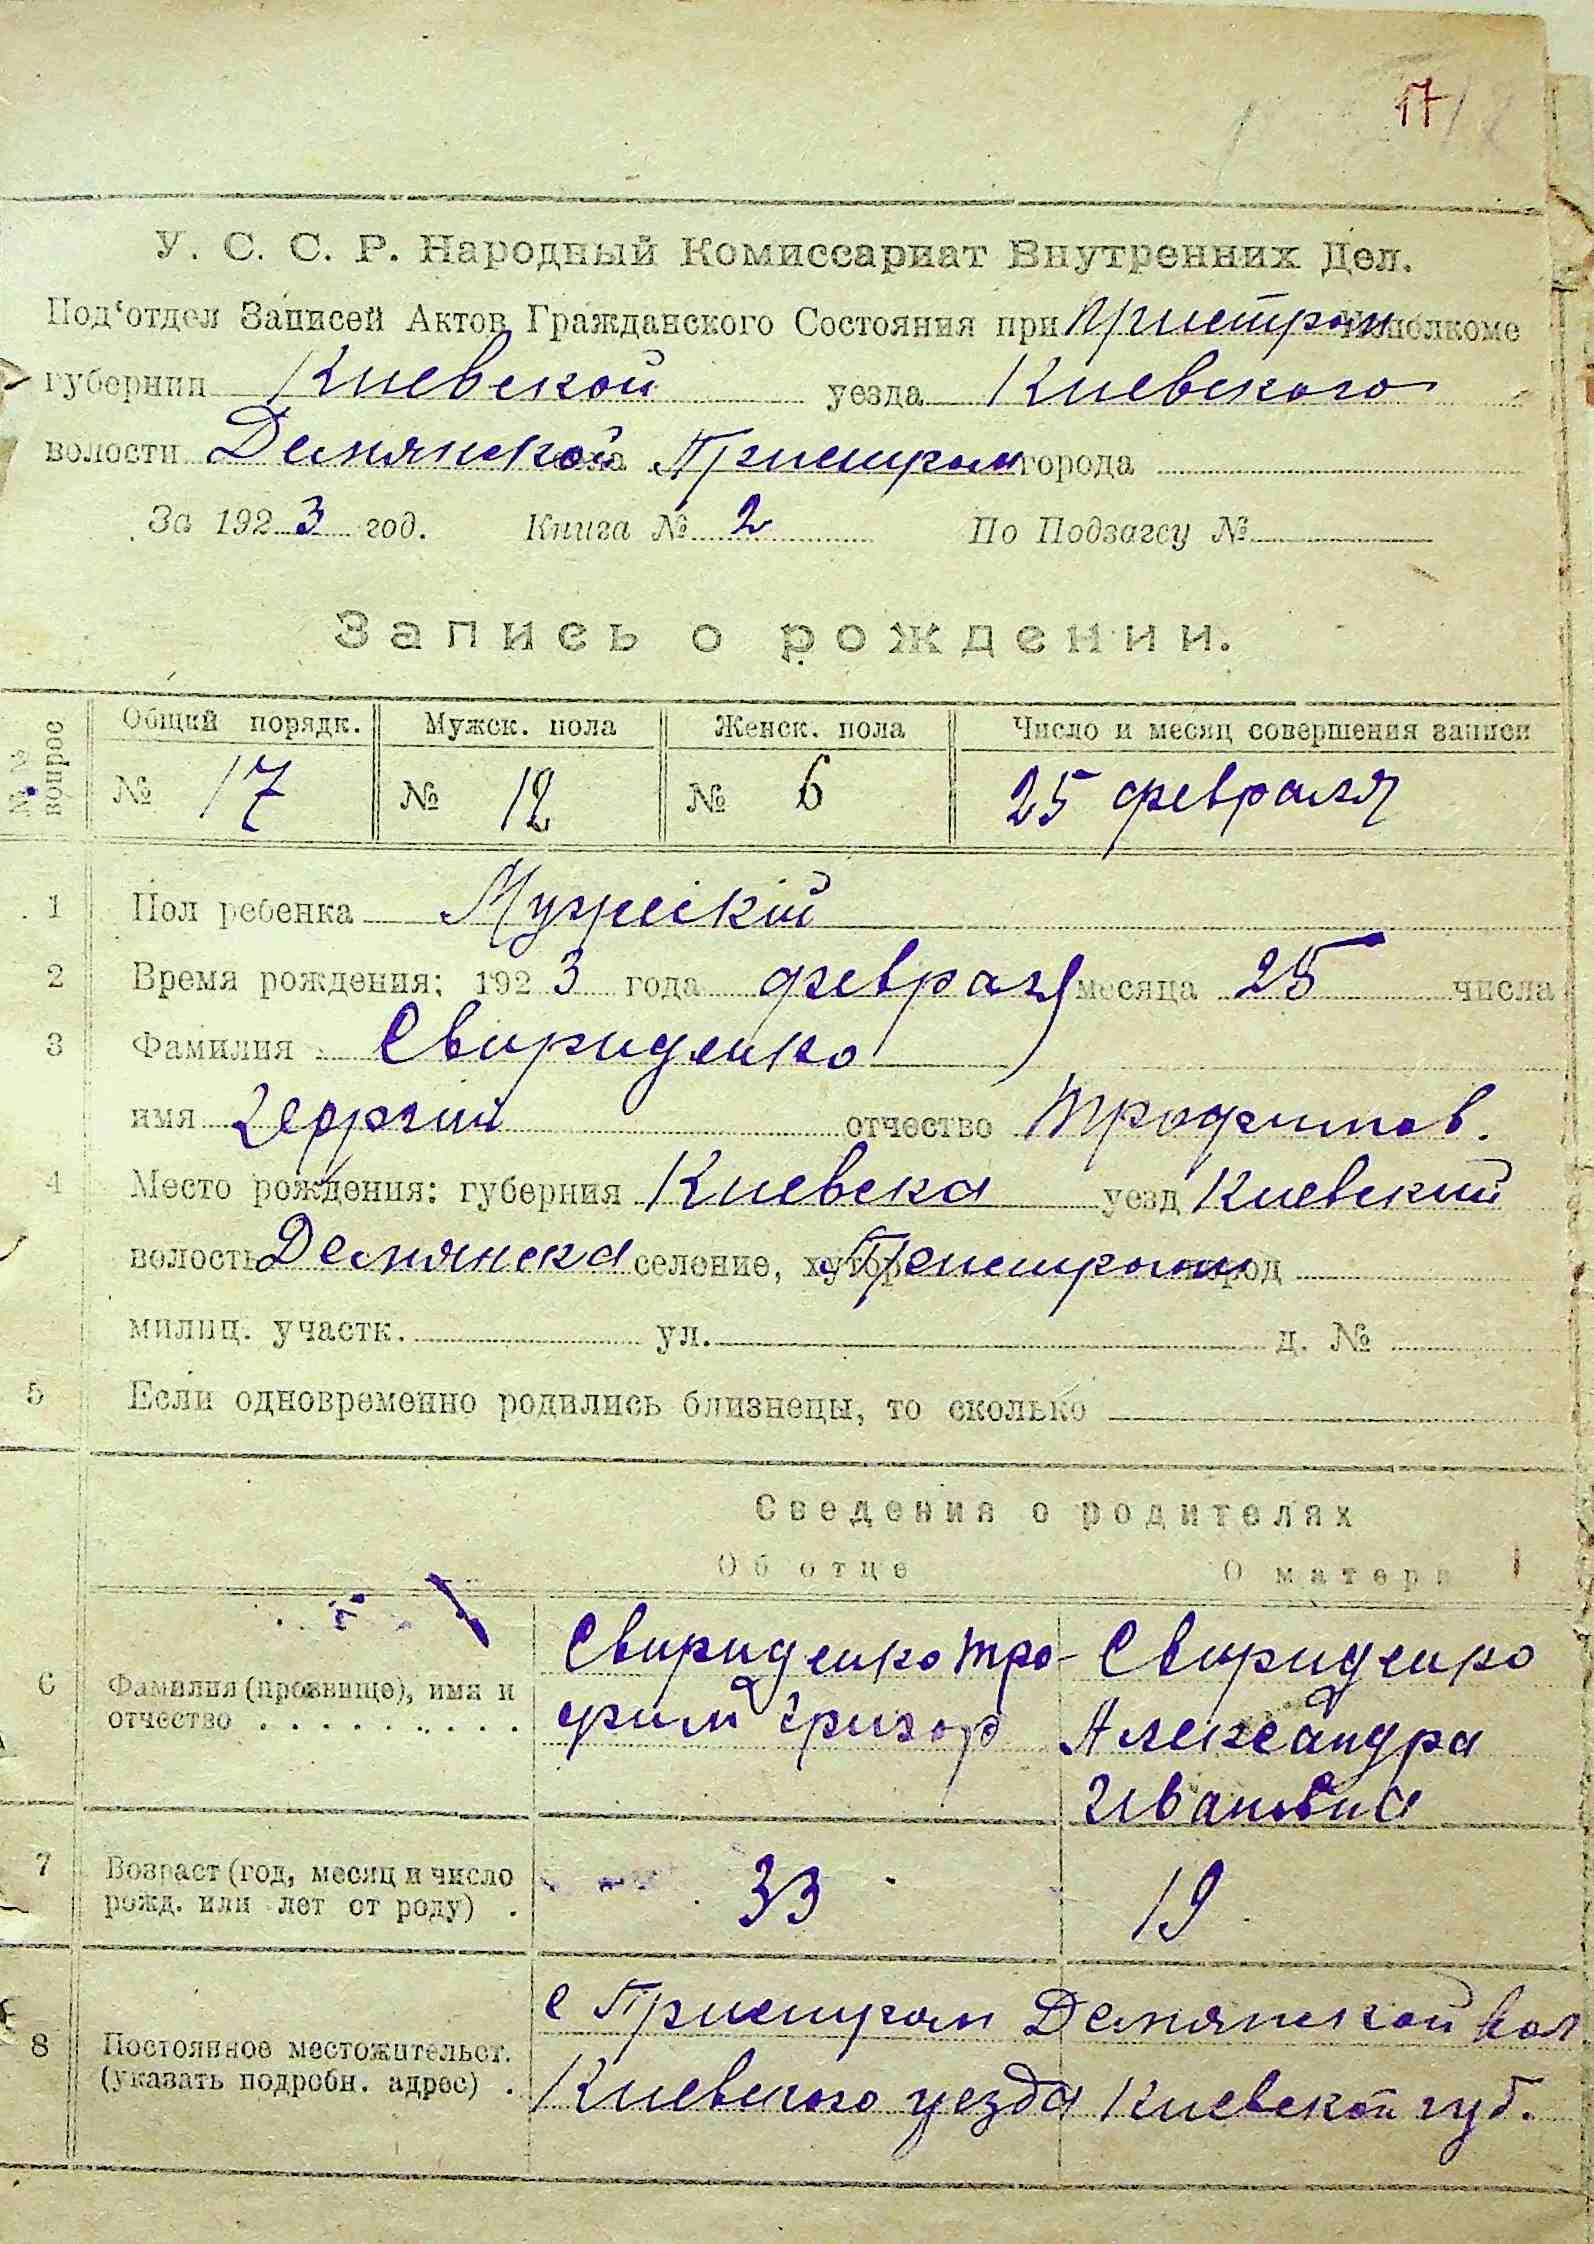 17
У. С. С. Р. Народный Комиссариат Внутренних Дел.
Под‘отдел Записей Актов Гражданского Состояния при Пристром Исполкоме
губернии Киевской уезда Киевского
волости Демянской села Пристром города
За 1923 год. Книга № 2 По Подзагсу №
Запись о рождении.
№№ вопрос
Общий порядк. Мужск. пола Женск. пола Число и месяц совершения записи
№ 17 № 12 № 6 25 февраля
1 Пол ребенка Мужескій
2 Время рождения: 1923 года февраля месяца 25 числа
3 Фамилия Свириденко
имя Георгий отчество Трофимов.
4 Место рождения: губерния Киевска уезд Киевский
волость Демянска селение, хутор Пристром город
милиц. участк. ул. д. №
5 Если одновременно родились близнецы, то сколько
Сведения о родителях
Об отце О матери
Свириденко Тро- Свириденко
6 Фамилия (прозвище), имя и
отчество фим Григор Александра
Ивановна
7 Возраст (год, месяц и число 33 19
рожд. или лет от роду)
с Пристром Демянской вол.
8 Постоянное местожительст.
(указать подробн. адрес) Киевского уезда Киевской губ.